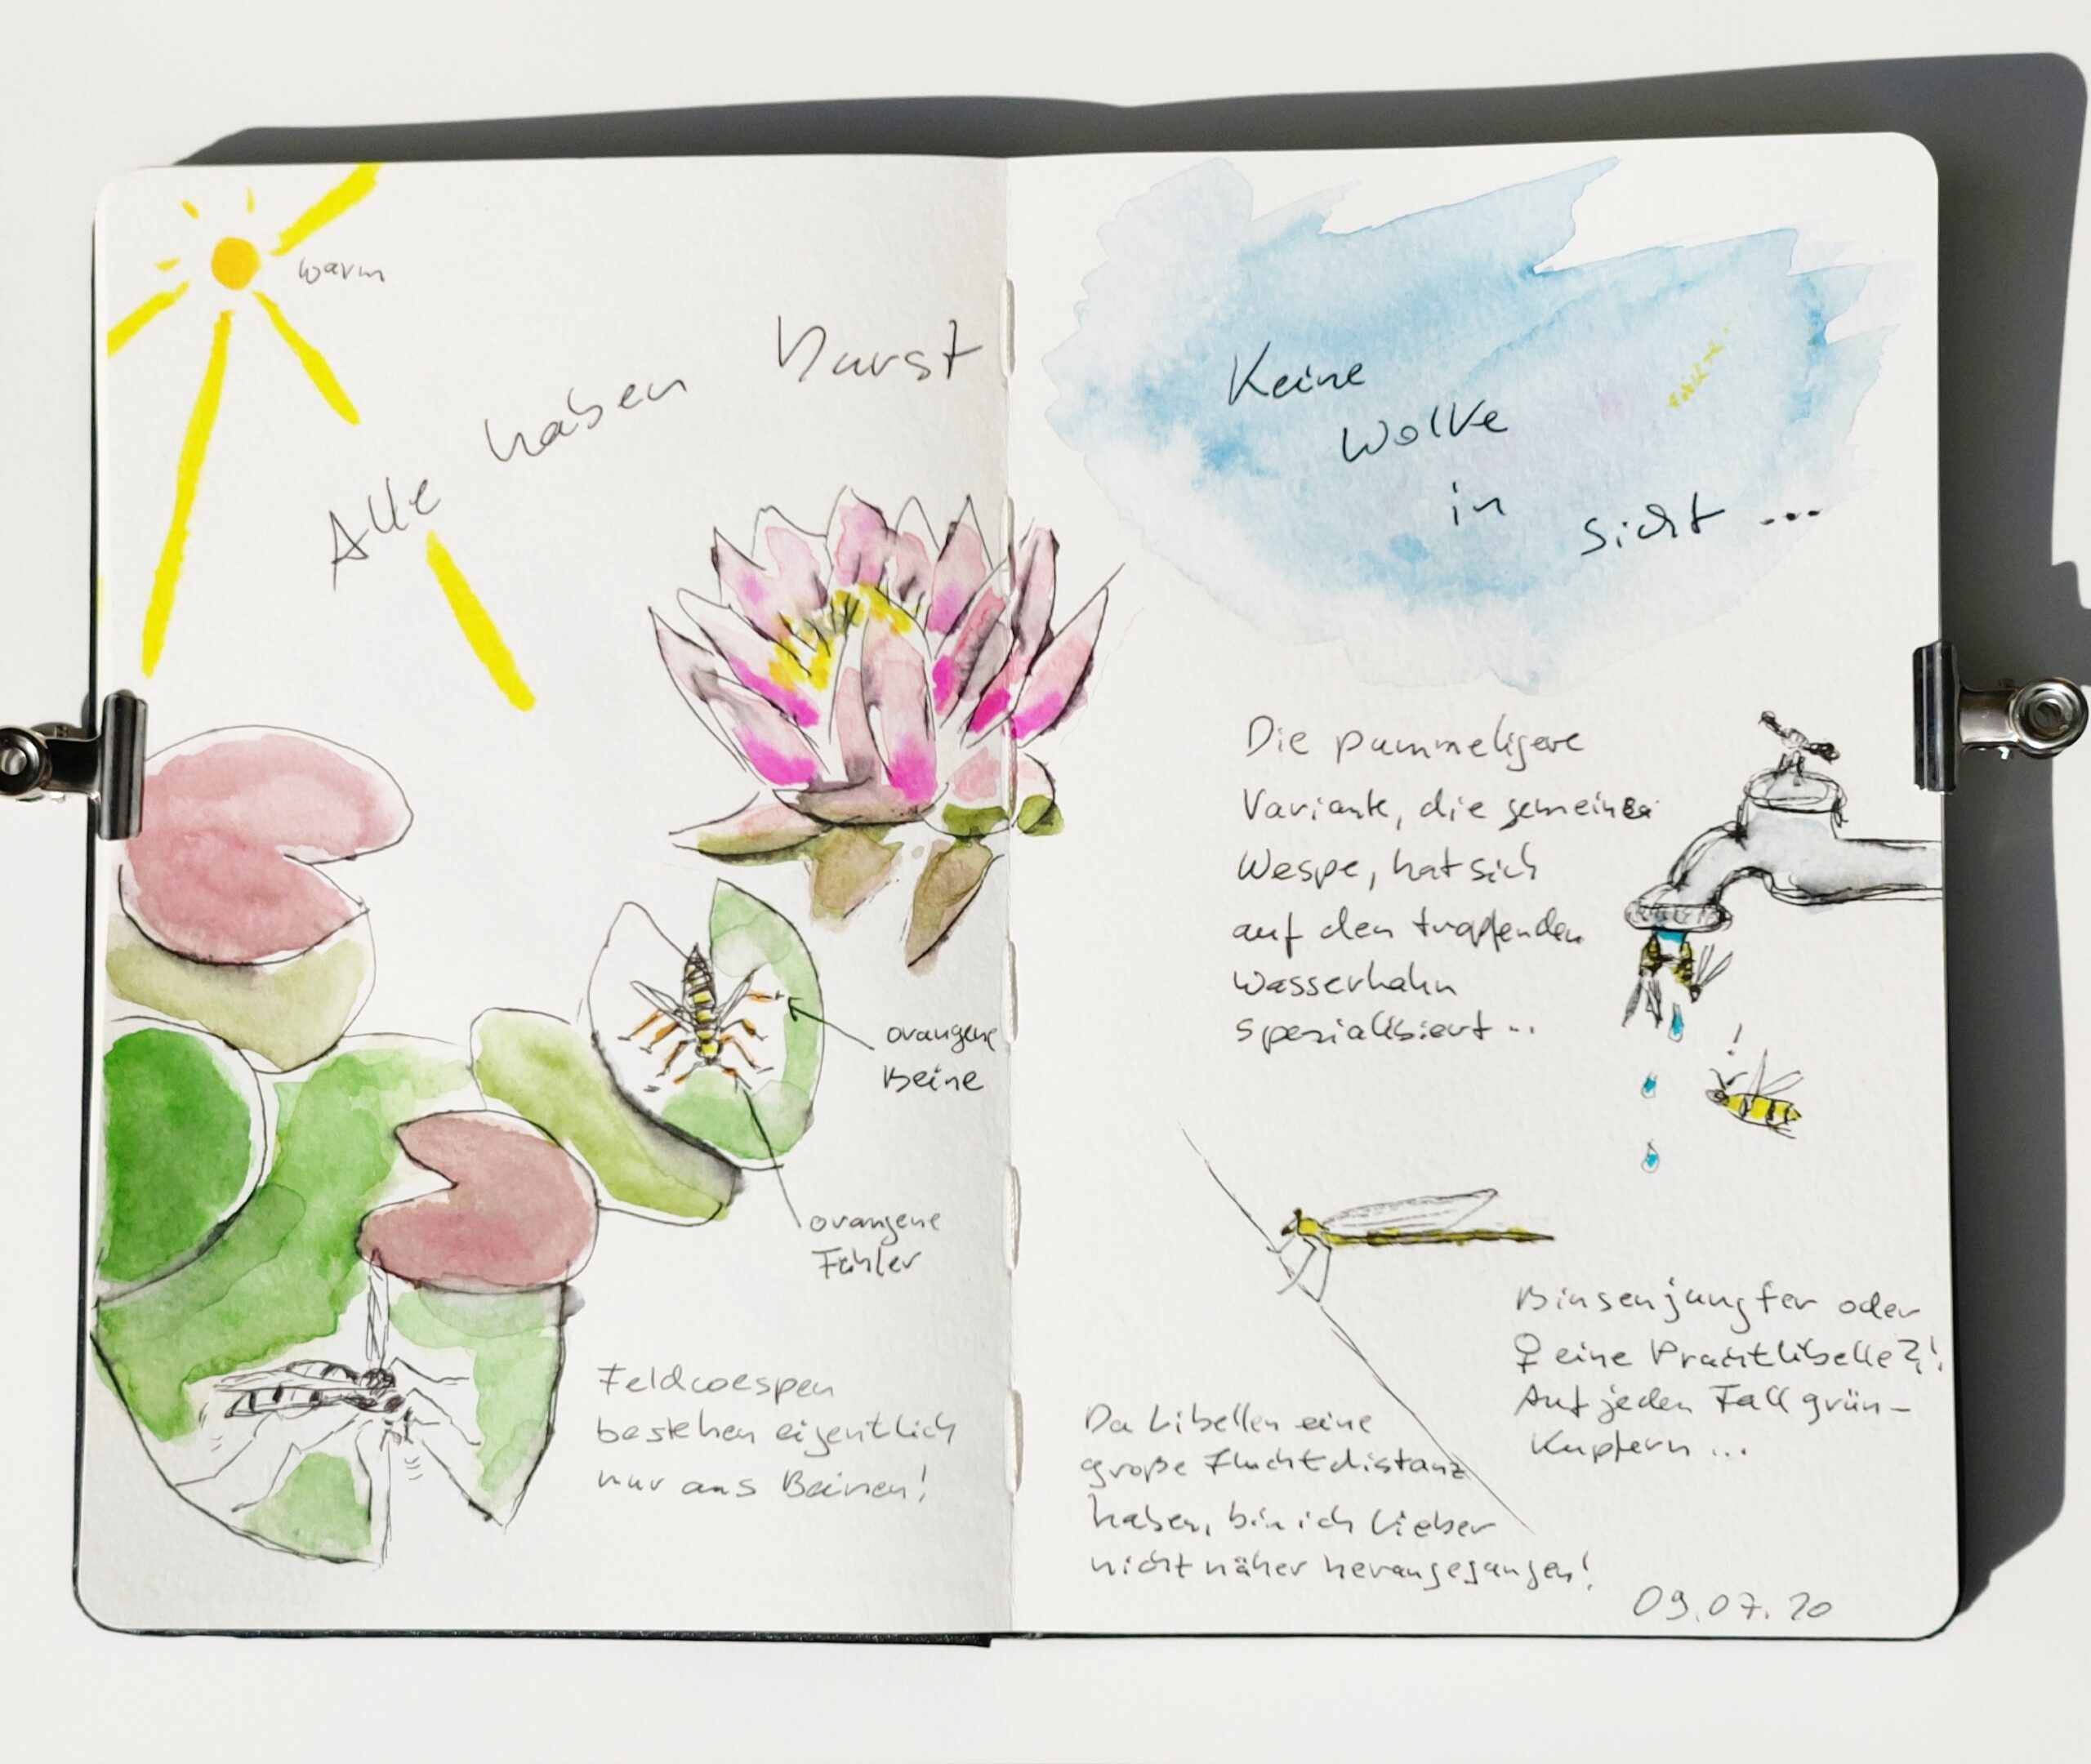 warm
Alle haben Durst
orangene
Beine
orangene
Fühler
Feldwespen
bestehen eigentlich
nur aus Beinen!
Keine
Wolke
in
Sicht ...
Die pummeligere
Variante, die gemeine
Wespe, hat sich
auf den tropfenden
Wasserhahn
spezialisiert ...
!
Binsenjungfer oder
♀ eine Prachtlibelle?!
Auf jeden Fall grün-
kupfern ...
Da Libellen eine
große Fluchtdistanz
haben, bin ich lieber
nicht näher herangegangen!
09.07.20